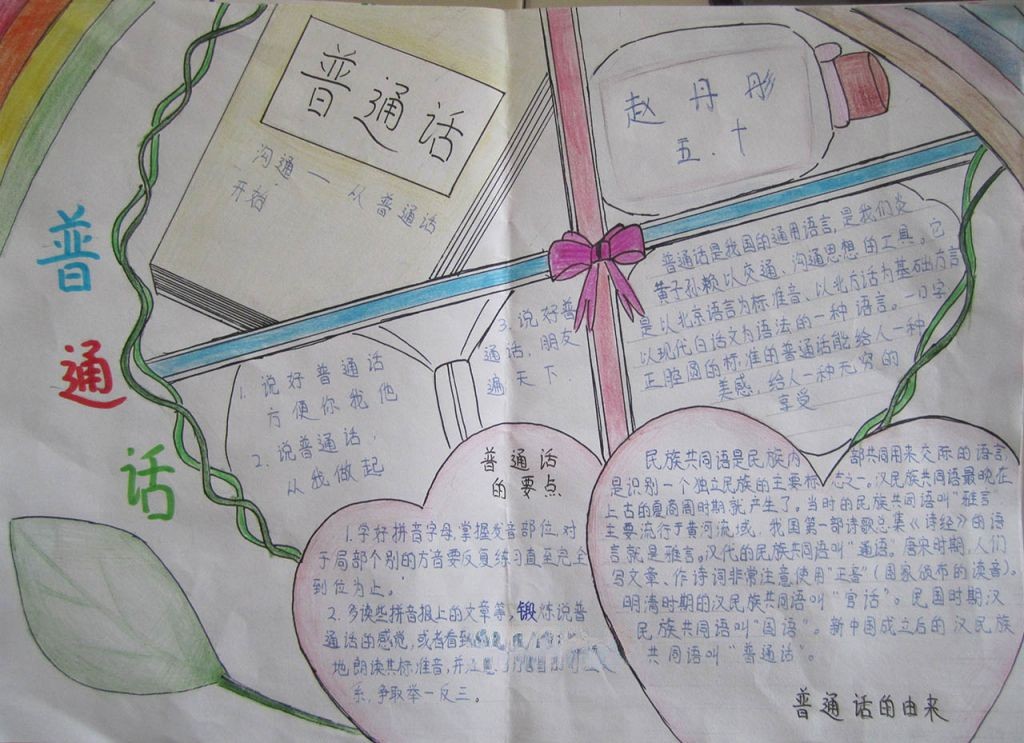 普通话
沟通—从普通话
开始
赵丹彤
五.十
普
通
话
普通话是我国的通用语言,是我们炎
黄子孙赖以交通、沟通思想的工具。它
是以北京语言为标准音、以北方话为基础方言
以现代白话文为语法的一种语言。一口字
正腔圆的标准的普通话能给人一种
美感,给人一种无穷的
享受
1.说好普通话
方便你我他
2.说普通话,
从我做起
3.说好普
通话,朋友
遍天下.
普通话
的要点
1.学好拼音字母,掌握发音部位,对
于局部个别的方音要反复练习直至完全
到位为止。
2.多读些拼音报上的文章等,锻炼说普
通话的感觉,或者看到
地朗读共标准音,并
系,争取举一反三。
民族共同语是民族内部共同用来交际的语言
是识别一个独立民族的主要标志之一。汉民族共同语最晚在
上古的夏商周时期就产生了。当时的民族共同语叫"雅言"
主要流行于黄河流域,我国第一部诗歌总集《诗经》的语
言就是雅言。汉代的民族共同语叫"通语"。唐宋时期,人们
写文章、作诗词非常注意使用"正音"(国家颁布的读音)。
明清时期的汉民族共同语叫"官话"。民国时期汉
民族共同语叫"国语"。新中国成立后的汉民族
共同语叫"普通话"。
普通话的由来